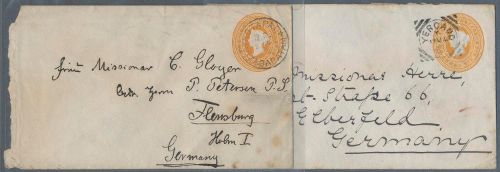 Frau Missionar C. Gloyer
Adr. Herrn P. Petersen P. S.
Flensburg
Holm I
Germany
YERCAUD
Missionar Herre,
Straße 66,
Elberfeld
Germany